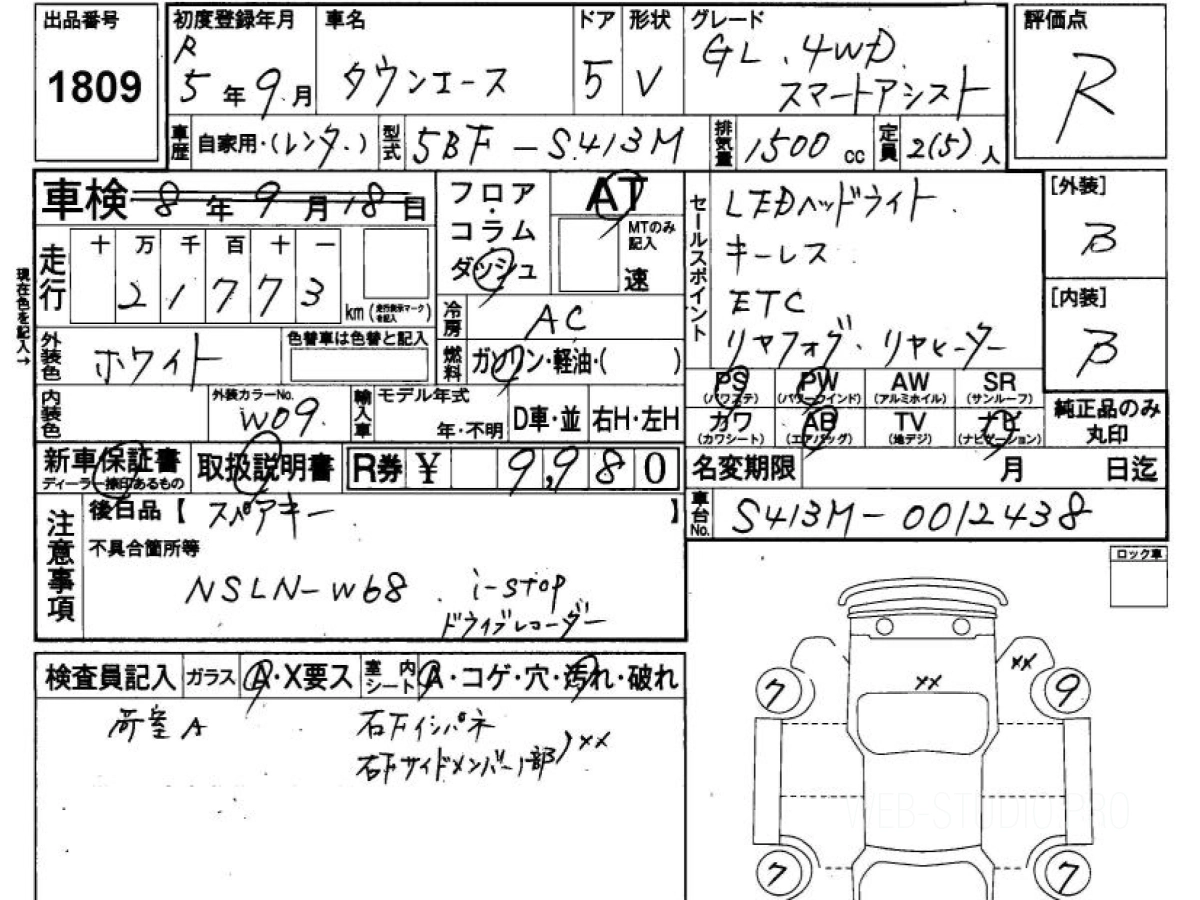 出品番号
1809
初度登録年月
R
5年9月
車名
タウンエース
ドア
5
形状
V
グレード
GL . 4WD
スマートアシスト
評価点
R
車歴
自家用・(レンタ.)
型式
5BF - S413M
排気量
1500 cc
定員
2(5)人
車検 8年9月18日
フロア
・
コラム
・
ダッシュ
AT
MTのみ記入
速
セールスポイント
LEDヘッドライト .
キーレス
ETC
リヤフォグ・リヤヒーター
[外装]
B
[内装]
B
現在色を記入→
走行
十 万 千 百 十 一
2 1 7 7 3
km (走行表示マークを記入)
冷房
AC
外装色
ホワイト
色替車は色替と記入
燃料
ガソリン・軽油・( )
PS
(パワステ)
PW
(パワーウインド)
AW
(アルミホイル)
SR
(サンルーフ)
カワ
(カワシート)
AB
(エアバッグ)
TV
(地デジ)
ナビ
(ナビゲーション)
純正品のみ
丸印
内装色
外装カラーNo.
W09.
輸入車
モデル年式
年・不明
D車・並
右H・左H
新車保証書
ディーラー捺印あるもの
取扱説明書
R券 ¥ 9,980
名変期限 月 日迄
車台No.
S413M-0012438
注意事項
後日品【 スペアキー 】
不具合箇所等
NSLN-W68 . i-stop
ドライブレコーダー
ロック車
検査員記入
ガラス
A・X要ス
室内
シート
A・コゲ・穴・汚れ・破れ
荷室A
右下インパネ
右下サイドメンバー1部) ××
××
××
7
9
7
7
WEB-STUDIO.PRO